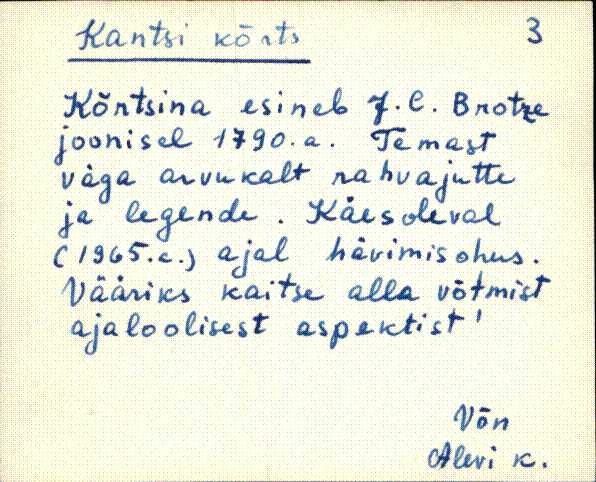 Kantsi kõrts
3
Kõrtsina esineb J. C. Brotze
joonisel 1790. a. Temast
väga arvukalt rahvajutte
ja legende. Käesoleval
(1965. a.) ajal hävimisohus.
Vääriks kaitse alla võtmist
ajaloolisest aspektist!
Võn
Alevi k.